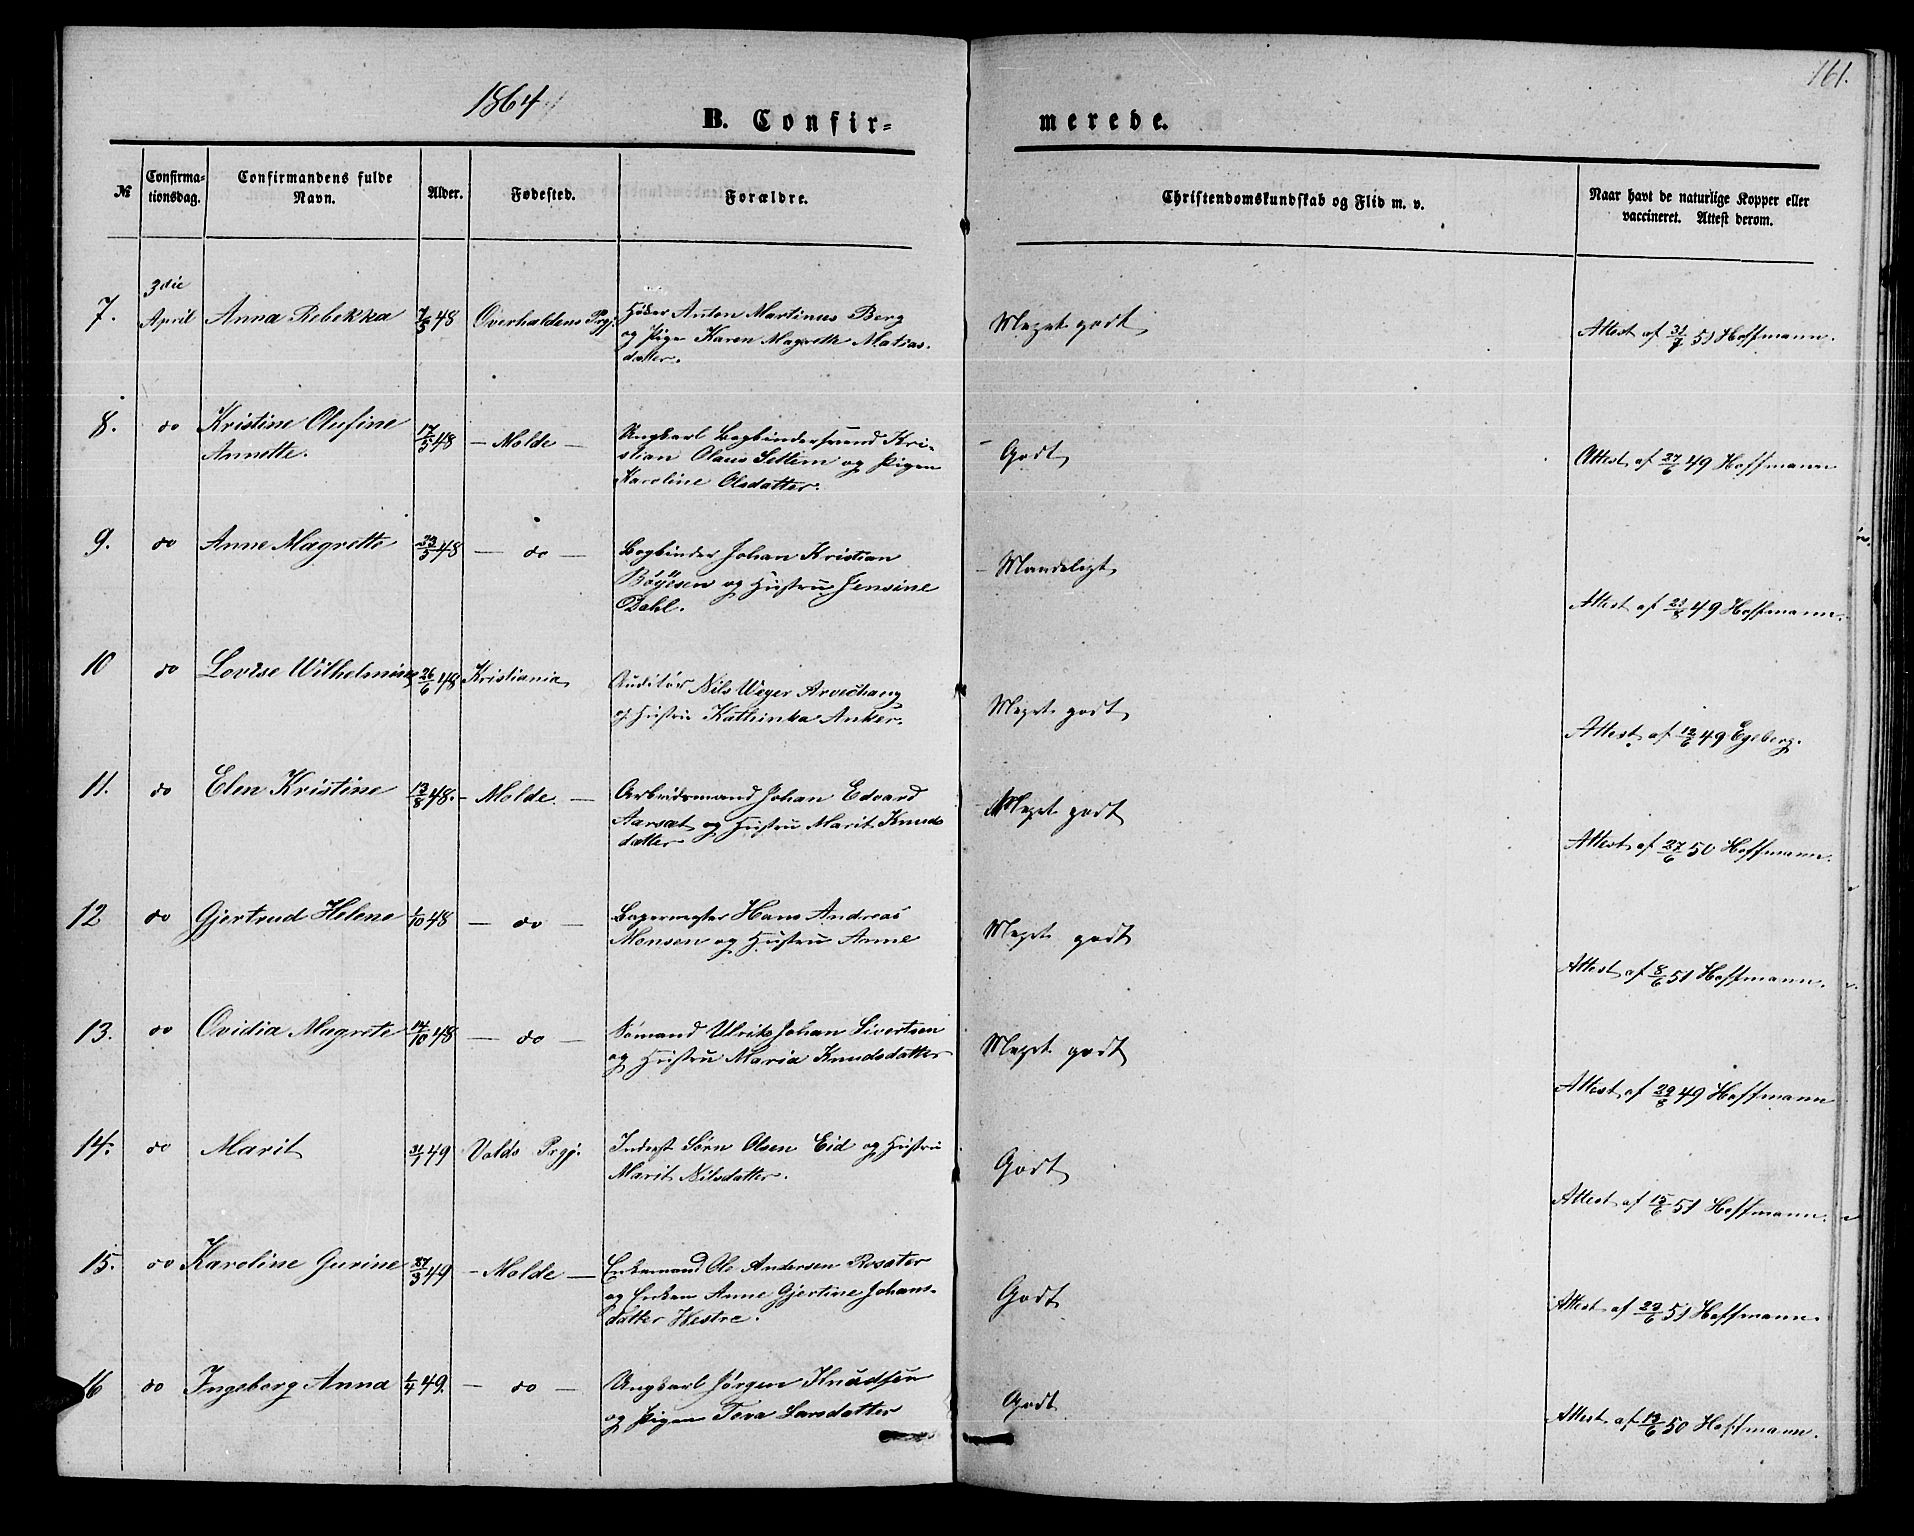 1864
161.
B. Confir=
merede.
№
Confirma-
tionsdag.
Confirmandens fulde
Navn.
Alder.
Fødested.
Forældre.
Christendomskundskab og Flid m. v.
Naar havt de naturlige Kopper eller
vaccineret. Attest derom.
3die
7. April Anna Rebekka 48 Overhaldens Prgj. Anton Martinus Berg Meget godt Attest af 51 Hoffmann.
og Pigen Karen Magrethe Matias-
datter.
8. do Kristine Olufine 17/5 48 – Molde – Ungkarl Bogbindersvend Kri- Godt Attest af 27/6 49 Hoffmann
Annette. stian Olaus Settem og Pigen
Karoline Olsdatter.
9. do Anne Magrette 23/5 48 – do – Bogbinder Johan Kristian Maadeligt Attest af 49 Hoffmann.
Böyesen og Hustru Jensine
Dahl.
10 do Lovise Wilhelmine 26/6 48 Kristiania Auditør Nils Weyer Meget godt Attest af 12/6 49 Egeberg.
og Hustru Kathinka Anker.
11. do Elen Kristine 13/8 48. – Molde. – Arbeidsmand Johan Edvard Meget godt Attest af 27/6 50 Hoffmann.
Aarsæt og Hustru Marit Knuds
datter.
12 do Gjertrud Helene 1/10 48 – do – Bagermester Hans Andreas Meget godt Attest af 8/6 51 Hoffmann.
Monsen og Hustru Anne
13. do Ovidia Magrete 14/10 48 – do – Sømand Ulrik Johan Sivertsen Meget godt Attest af 29/8 49 Hoffmann
og Hustru Maria Knudsdatter
14. do Marit 49 Volds Prgj. Inderst Sørn Olsen Eid og Hustru Godt Attest af 15/6 51 Hoffmann.
Marit Nilsdatter.
15. do Karoline Gurine 27/3 49 – Molde – Enkemand Ole Andersen Rosæter Godt Attest af 29/6 51 Hoffmann.
og Enken Anne Gjertine Johans-
datter Hestre.
16 do Ingeborg Anna 1/4 49. – do – Ungkarl Jørgen Knudsen Godt Attest af 12/6 50 Hoffmann.
og Pigen Tora Larsdatter